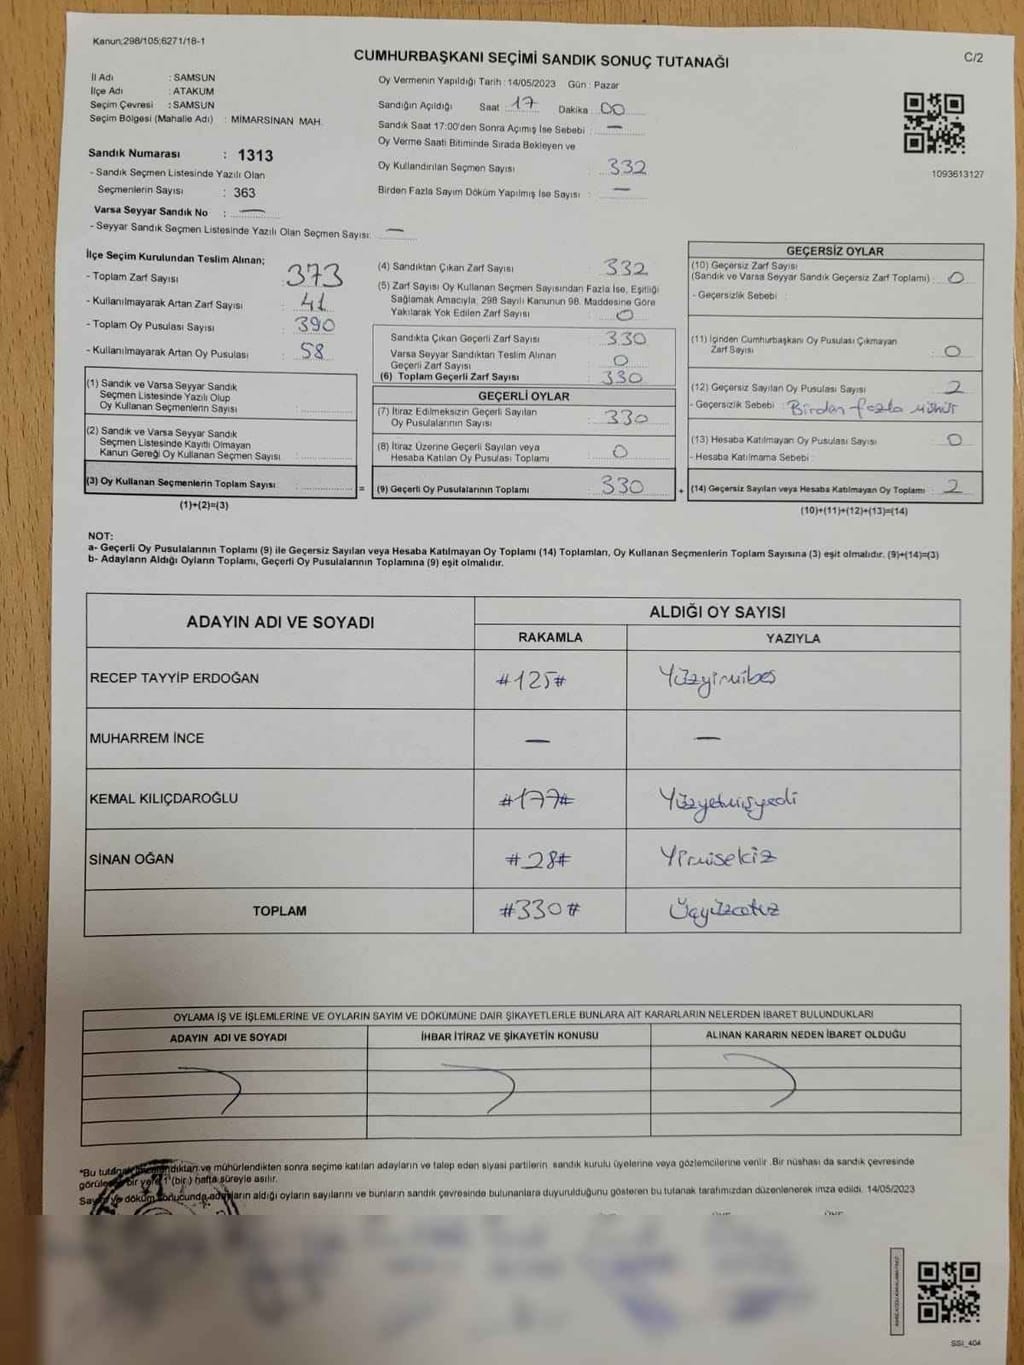 Kanun;298/105;6271/18-1
CUMHURBAŞKANI SEÇİMİ SANDIK SONUÇ TUTANAĞI
C/2
İl Adı : SAMSUN
İlçe Adı : ATAKUM
Seçim Çevresi : SAMSUN
Seçim Bölgesi (Mahalle Adı) : MİMARSİNAN MAH.
Sandık Numarası : 1313
- Sandık Seçmen Listesinde Yazılı Olan
Seçmenlerin Sayısı : 363
Varsa Seyyar Sandık No : —
- Seyyar Sandık Seçmen Listesinde Yazılı Olan Seçmen Sayısı: —
Oy Vermenin Yapıldığı Tarih : 14/05/2023 Gün : Pazar
Sandığın Açıldığı Saat : 17 Dakika : 00
Sandık Saat 17:00'den Sonra Açımış İse Sebebi : —
Oy Verme Saati Bitiminde Sırada Bekleyen ve
Oy Kullandırılan Seçmen Sayısı : 332
Birden Fazla Sayım Döküm Yapılmış İse Sayısı : —
1093613127
İlçe Seçim Kurulundan Teslim Alınan;
- Toplam Zarf Sayısı : 373
- Kullanılmayarak Artan Zarf Sayısı : 41
- Toplam Oy Pusulası Sayısı : 390
- Kullanılmayarak Artan Oy Pusulası : 58
(1) Sandık ve Varsa Seyyar Sandık
Seçmen Listesinde Yazılı Olup
Oy Kullanan Seçmenlerin Sayısı :
(2) Sandık ve Varsa Seyyar Sandık
Seçmen Listesinde Kayıtlı Olmayan
Kanun Gereği Oy Kullanan Seçmen Sayısı :
(3) Oy Kullanan Seçmenlerin Toplam Sayısı :
(1)+(2)=(3)
(4) Sandıktan Çıkan Zarf Sayısı : 332
(5) Zarf Sayısı Oy Kullanan Seçmen Sayısından Fazla İse, Eşitliği
Sağlamak Amacıyla, 298 Sayılı Kanunun 98. Maddesine Göre
Yakılarak Yok Edilen Zarf Sayısı : 0
Sandıkta Çıkan Geçerli Zarf Sayısı : 330
Varsa Seyyar Sandıktan Teslim Alınan
Geçerli Zarf Sayısı : 0
(6) Toplam Geçerli Zarf Sayısı : 330
GEÇERLİ OYLAR
(7) İtiraz Edilmeksizin Geçerli Sayılan
Oy Pusulalarının Sayısı : 330
(8) İtiraz Üzerine Geçerli Sayılan veya
Hesaba Katılan Oy Pusulası Toplamı : 0
= (9) Geçerli Oy Pusulalarının Toplamı : 330
GEÇERSİZ OYLAR
(10) Geçersiz Zarf Sayısı
(Sandık ve Varsa Seyyar Sandık Geçersiz Zarf Toplamı) : 0
- Geçersizlik Sebebi :
(11) İçinden Cumhurbaşkanı Oy Pusulası Çıkmayan
Zarf Sayısı : 0
(12) Geçersiz Sayılan Oy Pusulası Sayısı : 2
- Geçersizlik Sebebi : Birden fazla mühür
(13) Hesaba Katılmayan Oy Pusulası Sayısı : 0
- Hesaba Katılmama Sebebi :
+ (14) Geçersiz Sayılan veya Hesaba Katılmayan Oy Toplamı : 2
(10)+(11)+(12)+(13)=(14)
NOT:
a- Geçerli Oy Pusulalarının Toplamı (9) ile Geçersiz Sayılan veya Hesaba Katılmayan Oy Toplamı (14) Toplamları, Oy Kullanan Seçmenlerin Toplam Sayısına (3) eşit olmalıdır. (9)+(14)=(3)
b- Adayların Aldığı Oyların Toplamı, Geçerli Oy Pusulalarının Toplamına (9) eşit olmalıdır.
ADAYIN ADI VE SOYADI
ALDIĞI OY SAYISI
RAKAMLA YAZIYLA
RECEP TAYYİP ERDOĞAN #125# Yüzyirmibeş
MUHARREM İNCE — —
KEMAL KILIÇDAROĞLU #177# Yüzyetmişyedi
SİNAN OĞAN #28# Yirmisekiz
TOPLAM #330# Üçyüzotuz
OYLAMA İŞ VE İŞLEMLERİNE VE OYLARIN SAYIM VE DÖKÜMÜNE DAİR ŞİKAYETLERLE BUNLARA AİT KARARLARIN NELERDEN İBARET BULUNDUKLARI
ADAYIN ADI VE SOYADI İHBAR İTİRAZ VE ŞİKAYETİN KONUSU ALINAN KARARIN NEDEN İBARET OLDUĞU
"Bu tutanak imzalandıktan ve mühürlendikten sonra seçime katılan adayların ve talep eden siyasi partilerin sandık kurulu üyelerine veya gözlemcilerine verilir. Bir nüshası da sandık çevresinde
görülecek bir yere 1 (bir) hafta süreyle asılır.
Sayım ve döküm sonucunda adayların aldığı oyların sayılarını ve bunların sandık çevresinde bulunanlara duyurulduğunu gösteren bu tutanak tarafımızdan düzenlenerek imza edildi. 14/05/2023
SSI_404